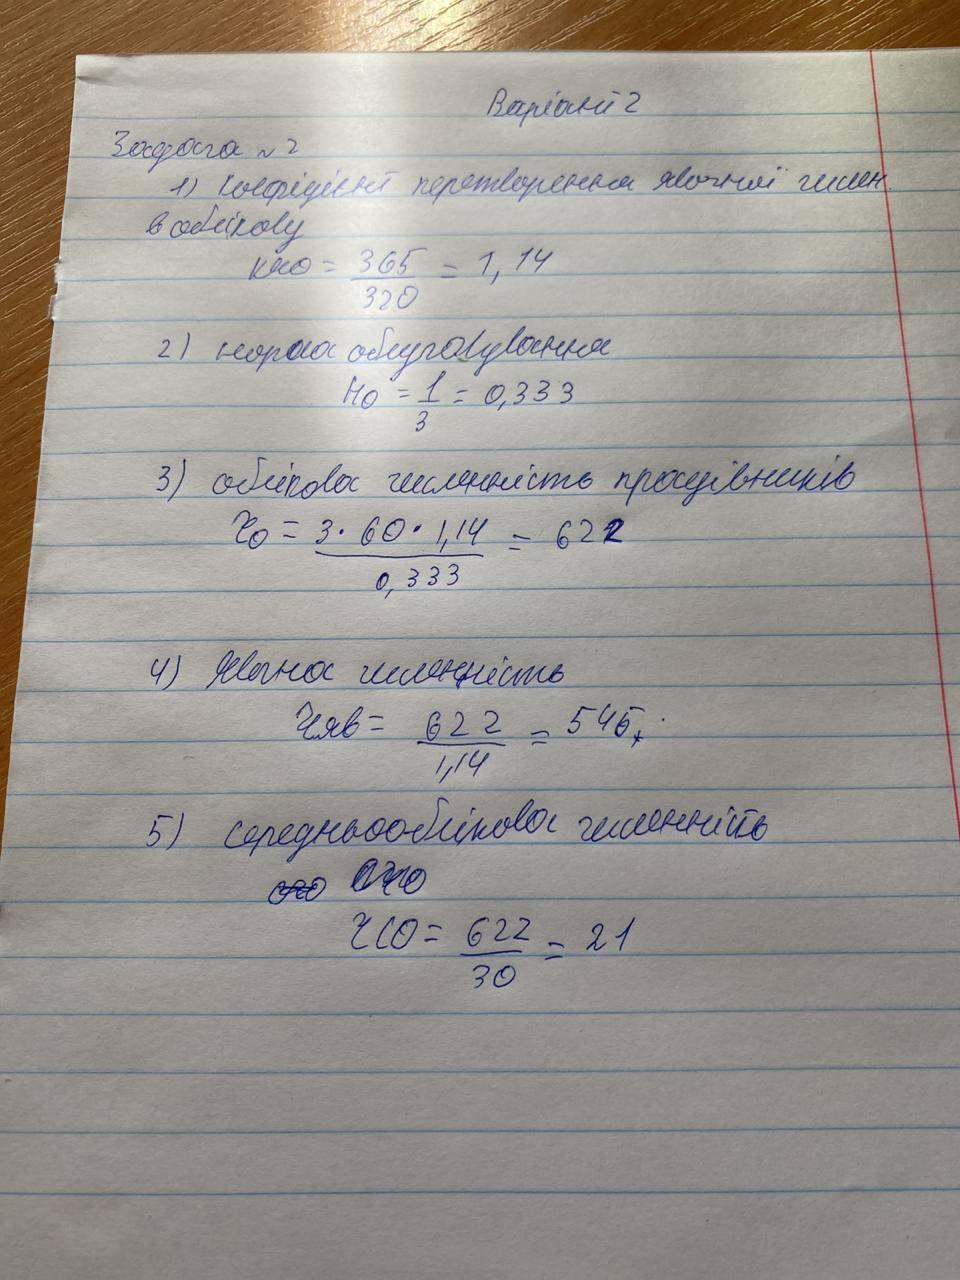 Варіант 2
Задача №2
1) Коефіцієнт перетворення явочної числен.
в облікову
кяо = 365 / 320 = 1,14
2) норма обслуговування
Но = 1 / 3 = 0,333
3) облікова численність працівників
Чо = 3 · 60 · 1,14 / 0,333 = 622
4) Явочна численність
Чяв = 622 / 1,14 = 546
5) середньооблікова численність
ЧСО = 622 / 30 = 21